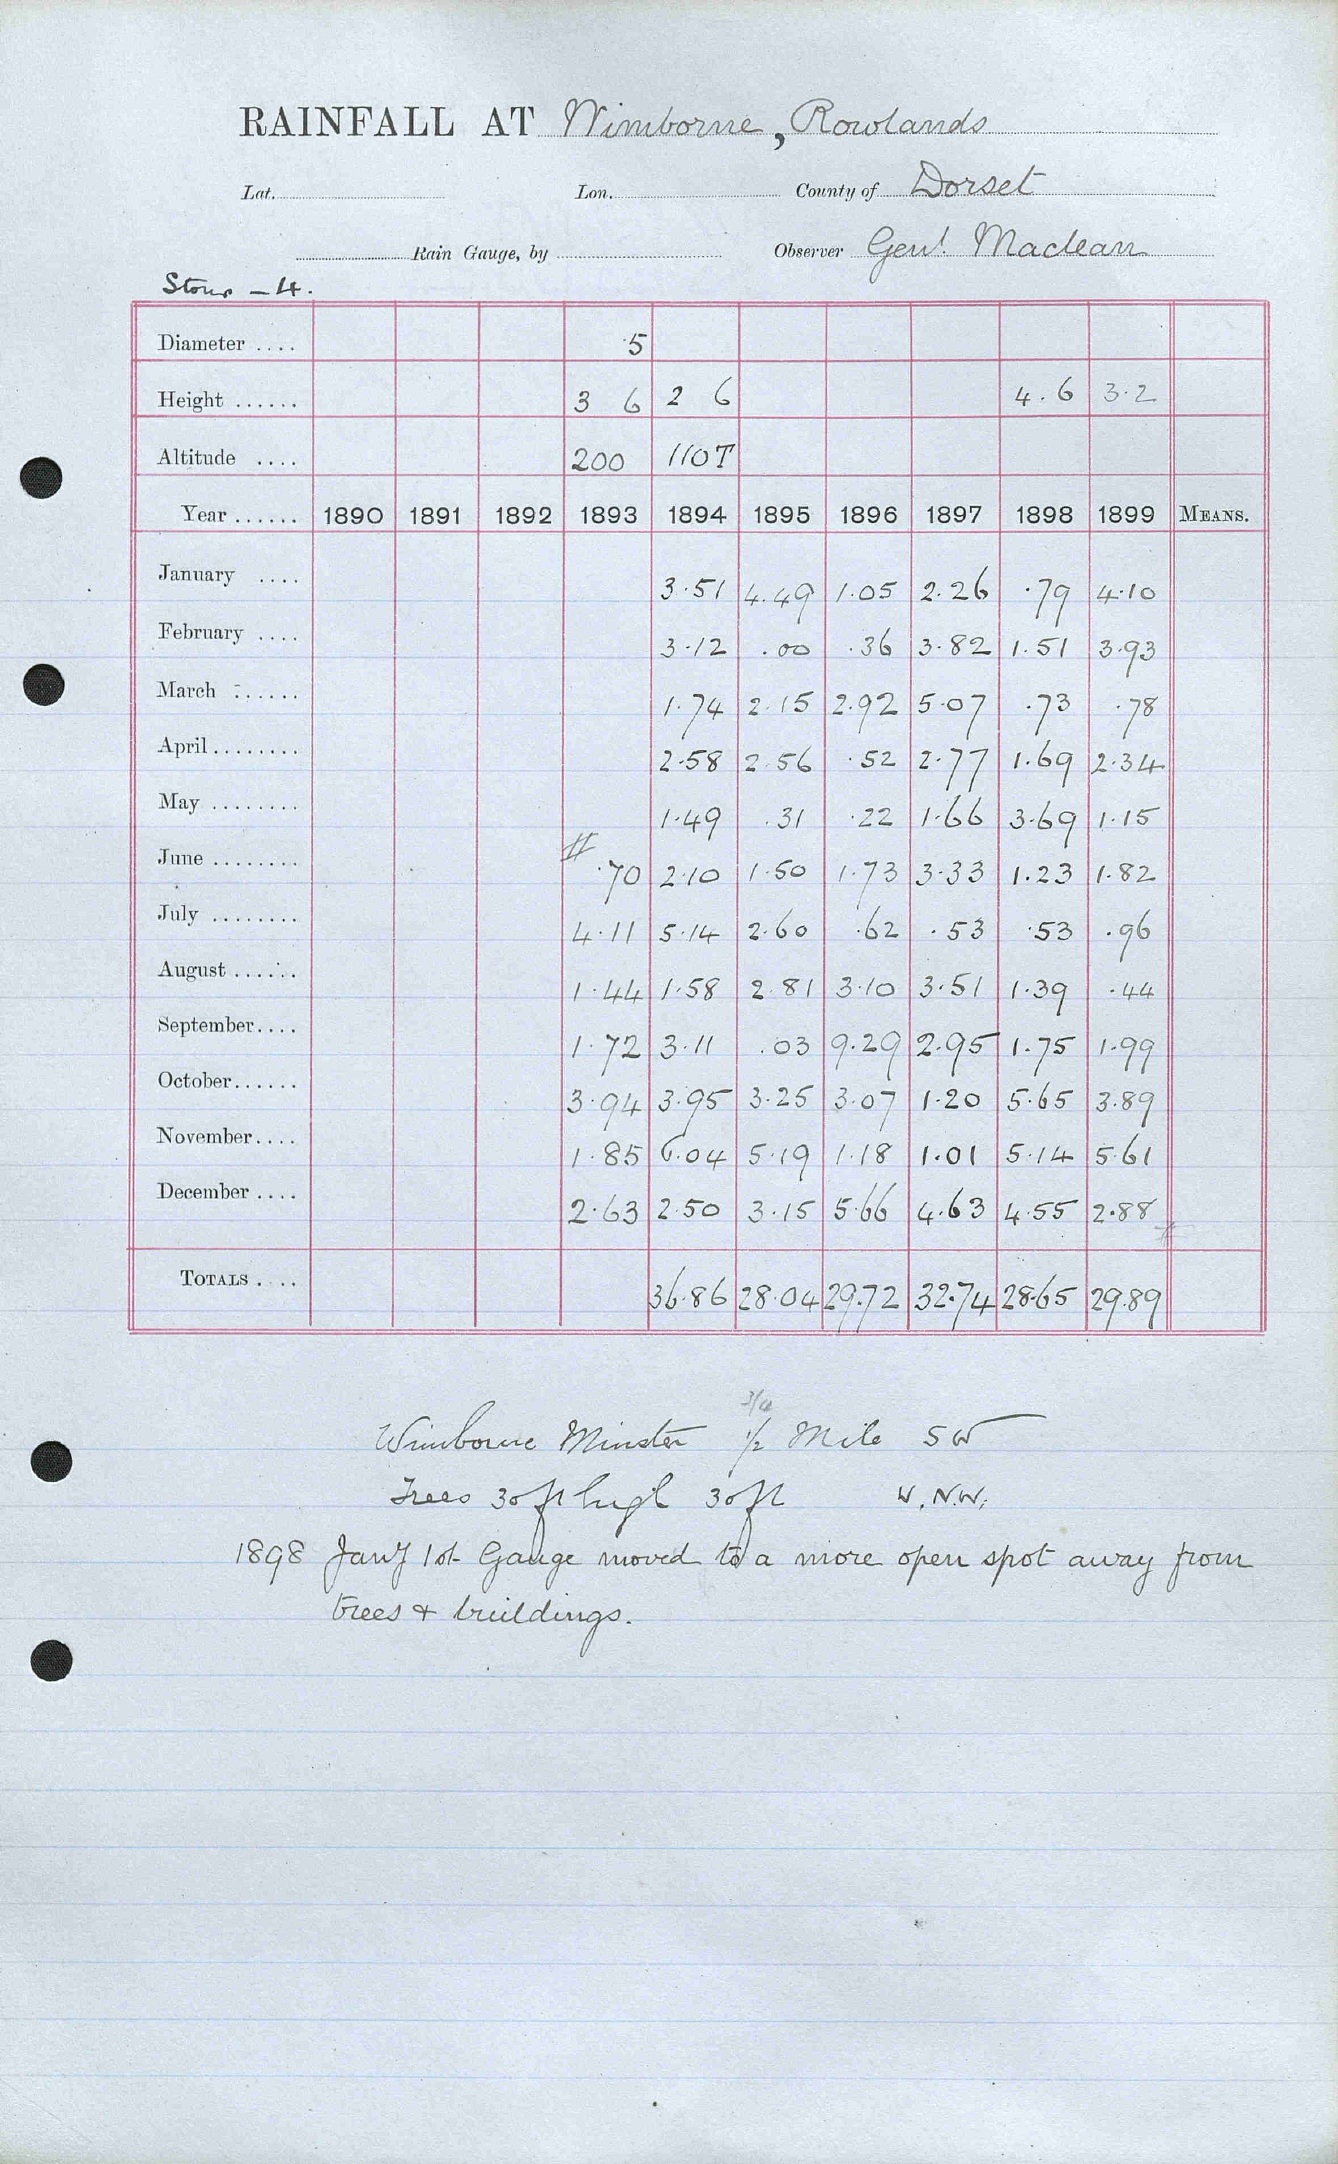 RAINFALL AT Wimborne, Rowlands
Lat. Lon. County of Dorset
Rain Gauge, by Observer Genl. Maclean
Stour - 4.
Diameter .... 5
Height ...... 3 6 2 6 4.6 3.2
Altitude .... 200 110T
Year ...... 1890 1891 1892 1893 1894 1895 1896 1897 1898 1899 MEANS.
January .... 3.51 4.49 1.05 2.26 .79 4.10
February .... 3.12 .00 .36 3.82 1.51 3.93
March ...... 1.74 2.15 2.92 5.07 .73 .78
April ........ 2.58 2.56 .52 2.77 1.69 2.34
May ........ 1.49 .31 .22 1.66 3.69 1.15
June ........ # .70 2.10 1.50 1.73 3.33 1.23 1.82
July ........ 4.11 5.14 2.60 .62 .53 .53 .96
August ...... 1.44 1.58 2.81 3.10 3.51 1.39 .44
September.... 1.72 3.11 .03 9.29 2.95 1.75 1.99
October...... 3.94 3.95 3.25 3.07 1.20 5.65 3.89
November.... 1.85 6.04 5.19 1.18 1.01 5.14 5.61
December .... 2.63 2.50 3.15 5.66 4.63 4.55 2.88 #
TOTALS .... 36.86 28.04 29.72 32.74 28.65 29.89
3/4
Wimborne Minster 1/2 Mile SW
Trees 30ft high 30ft W.N.W.
1898 Jany 1st Gauge moved to a more open spot away from
trees & buildings.